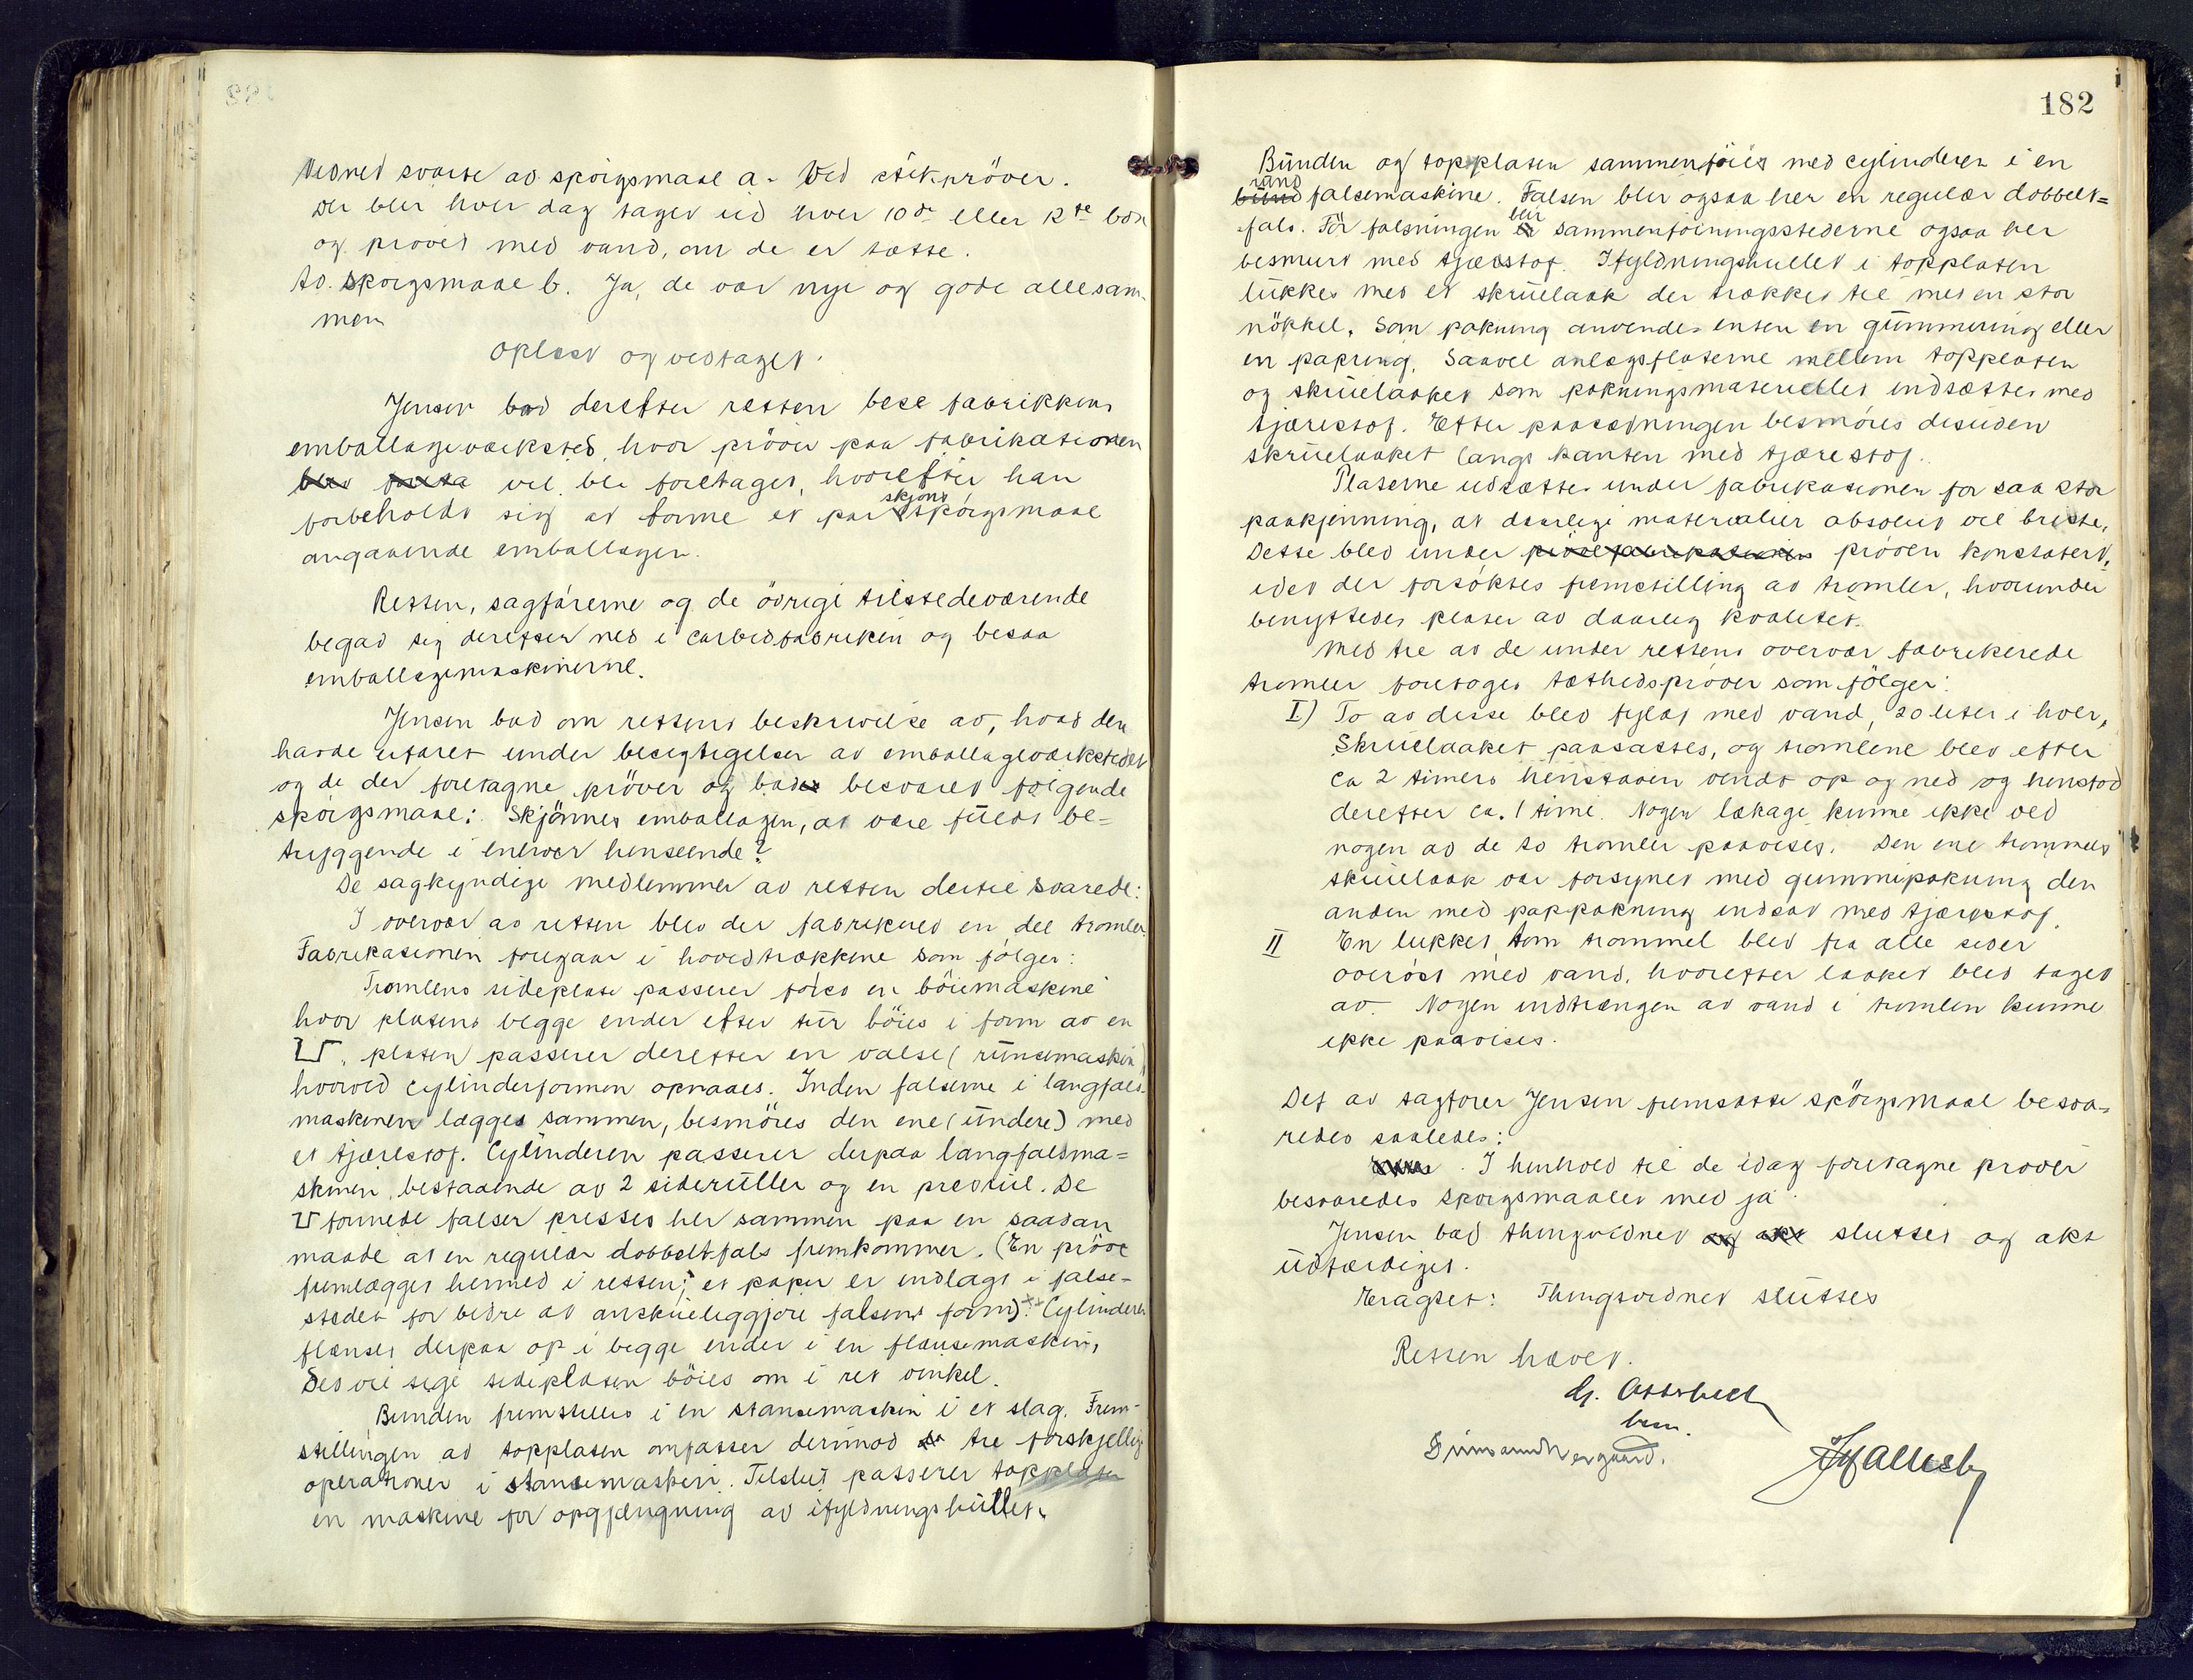 Vidnet svarte av spörgsmaal a. Ved stikpröver.
Der blir hver dag taget ud hver 10de eller 12te boks
og prövet med vand, om de er tætte.
Ad. Spörgsmaal b. Ja, de var nye og gode allesam-
men
Oplæst og vedtaget.
Jensen bad derefter retten bese fabrikkens
emballageverksted, hvor pröver paa fabrikationen
blev foreta vil bli foretaget, hvorefter han
skjöns
forbeholdt sig at forme et par spörgsmaal
angaaende emballagen.
Retten, sagförerne og de övrige tilstedeværende
begav sig derefter ned i carbidfabriken og besaa
emballagemaskinerne.
Jensen bad om rettens beskrivelse av, hvad den
havde erfaret under besigtigelsen av emballageverkstedet
og de der foretagne pröver og bades besvaret fölgende
spörgsmaal: Skjönnes emballagen, at være fuldt be=
tryggende i enhver henseende?
De sagkyndige medlemmer av retten dertil svarede:
I overvær av retten blev der fabrikeret en del tromler.
Fabrikationen foregaar i hovedtrækkene som fölger:
Tromlens sideplate passerer först en böiemaskine
hvor platens begge ender efter tur böies i form av en
U. platen passerer derefter en valse (rundemaskin)
hvorved cylinderformen opnaaes. Inden falserne i langfals-
maskinen lægges sammen, besmöres den ene (undere) med
et tjærestof. Cylinderen passerer derpaa langfalsma=
skinen, bestaaende av 2 sideruller og en præsrul. De
U formede falser presses her sammen paa en saadan
maade at en regulær dobbeltfals fremkommer. (En pröve
fremlægges hermed i retten; et papir er indlagt i false-
steden for bedre at anskueliggjöre falsens form). Cylinderen
flanses derpaa op i begge ender i en flansemaskin,
det vil sige sideplaten böies om i ret vinkel.
Bunden fremstilles i en stansemaskin i et slag. Frem-
stillingen av topplaten omfatter derimod tre forskjellige
operationer i stansemaskin. Tilslut passerer topplaten
en maskine for opgjængning av ifyldningshullet.
182
Bunden og topplaten sammenföies med cylinderen i en
rand
bund falsemaskine. Falsen blir ogsaa her en regulær dobbelt=
blir
fals. För falsningen er sammenföiningsstederne ogsaa her
besmurt med tjærestof. Ifyldningshullet i topplaten
lukkes med et skruelaak der trækkes til med en stor
nökkel. Som pakning anvendes enten en gummiring eller
en papring. Saavel anlægsflaterne mellem topplaten
og skruelaaket som pakningsmateriellet indsættes med
tjærestof. Efter paasætningen besmöres desuden
skruelaaket langs kanten med tjærestof.
Platerne udsættes under fabrikationen for saa stor
paakjenning, at daarlige materialier absolut vil briste.
Dette blev under pröven konstatert,
idet der forsöktes fremstilling av tromler, hvorunder
benyttedes plater av daarlig kvalitet.
Med tre av de under rettens overvær fabrikerede
tromler foretoges tæthedspröver som fölger:
I) To av disse blev fyldt med vand, 20 liter i hver,
Skruelaaket paasattes, og tromlene blev efter
ca 2 timers henstaaen vendt op og ned og henstod
derefter ca. 1 time. Nogen lækage kunne ikke ved
nogen av de to tromler paavises. Den ene trommels
skruelaak var forsynet med gummipakning den
anden med pappakning indsat med tjærestof.
II En lukket tom trommel blev fra alle sider
overöst med vand, hvorefter laaket blev taget
av. Nogen indtrængen av vand i tromlen kunne
ikke paavises.
Det av sagförer Jensen fremsatte spörgsmaal besva-
redes saaledes:
I henhold til de idag foretagne pröver
besvaredes spörgsmaalet med ja.
Jensen bad thingvidnet og akt sluttet og akt
udfærdiget.
Eragtet: Thingsvidnet sluttes
Retten hævet.